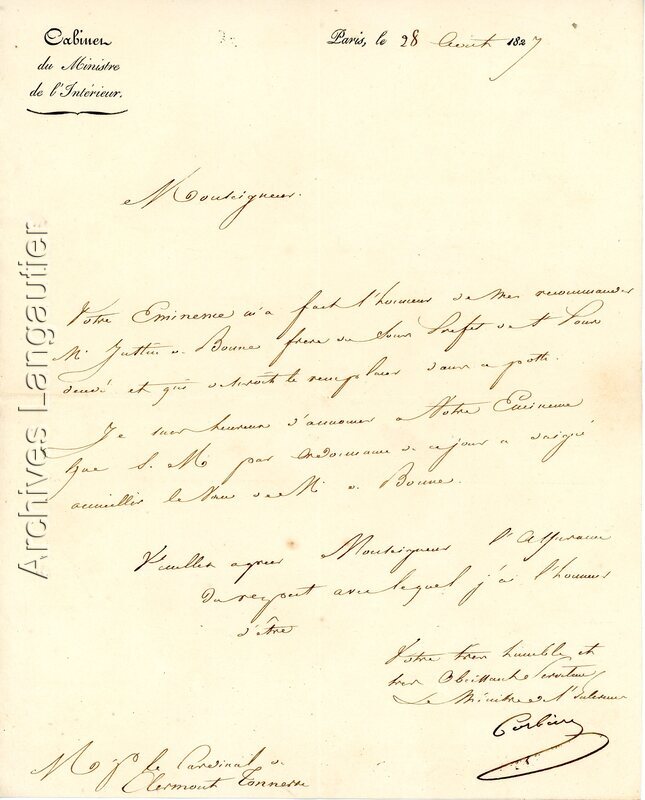 Cabinet
du Ministre
de l'Intérieur.
Paris, le 28 Août 1827
Monseigneur.
Votre Eminence m'a fait l'honneur de me recommander
Mr Justin de Bonne frère du Sous Prefet de St Pons
décédé et qui desiroit le remplacer dans ce poste.
Je suis heureux d'annoncer a Votre Eminence
que S. M. par ordonnance de ce jour a daigné
accueillir le Vœu de Mr de Bonne.
Veuillez agreer Monseigneur l'assurance
du respect avec lequel j'ai l'honneur
d'être
Votre tres humble et
tres Obeissant Serviteur
Le Ministre de l'Interieur
Corbière
Mgr le Cardinal de
Clermont Tonnerre
Archives Langautier